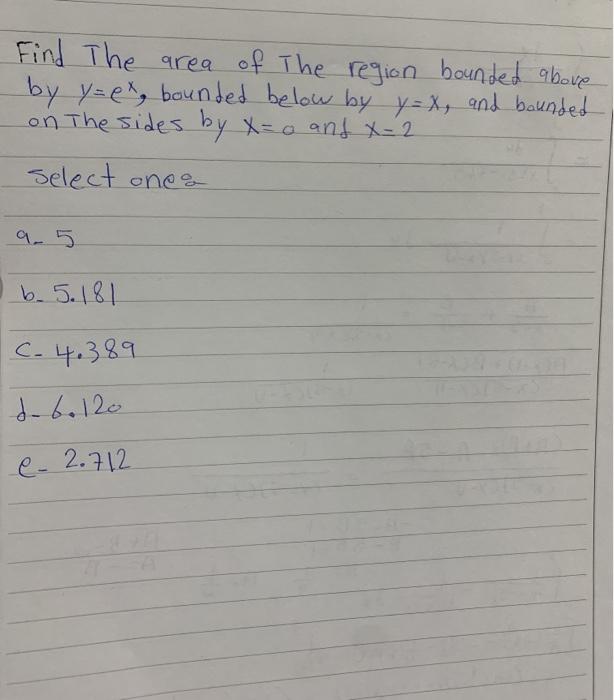 Find The area of The region bounded above
by y=eˣ, bounded below by y=x, and bounded
on The sides by x=0 and x=2
Select one:
a- 5
b- 5.181
c- 4.389
d- 6.120
e- 2.712